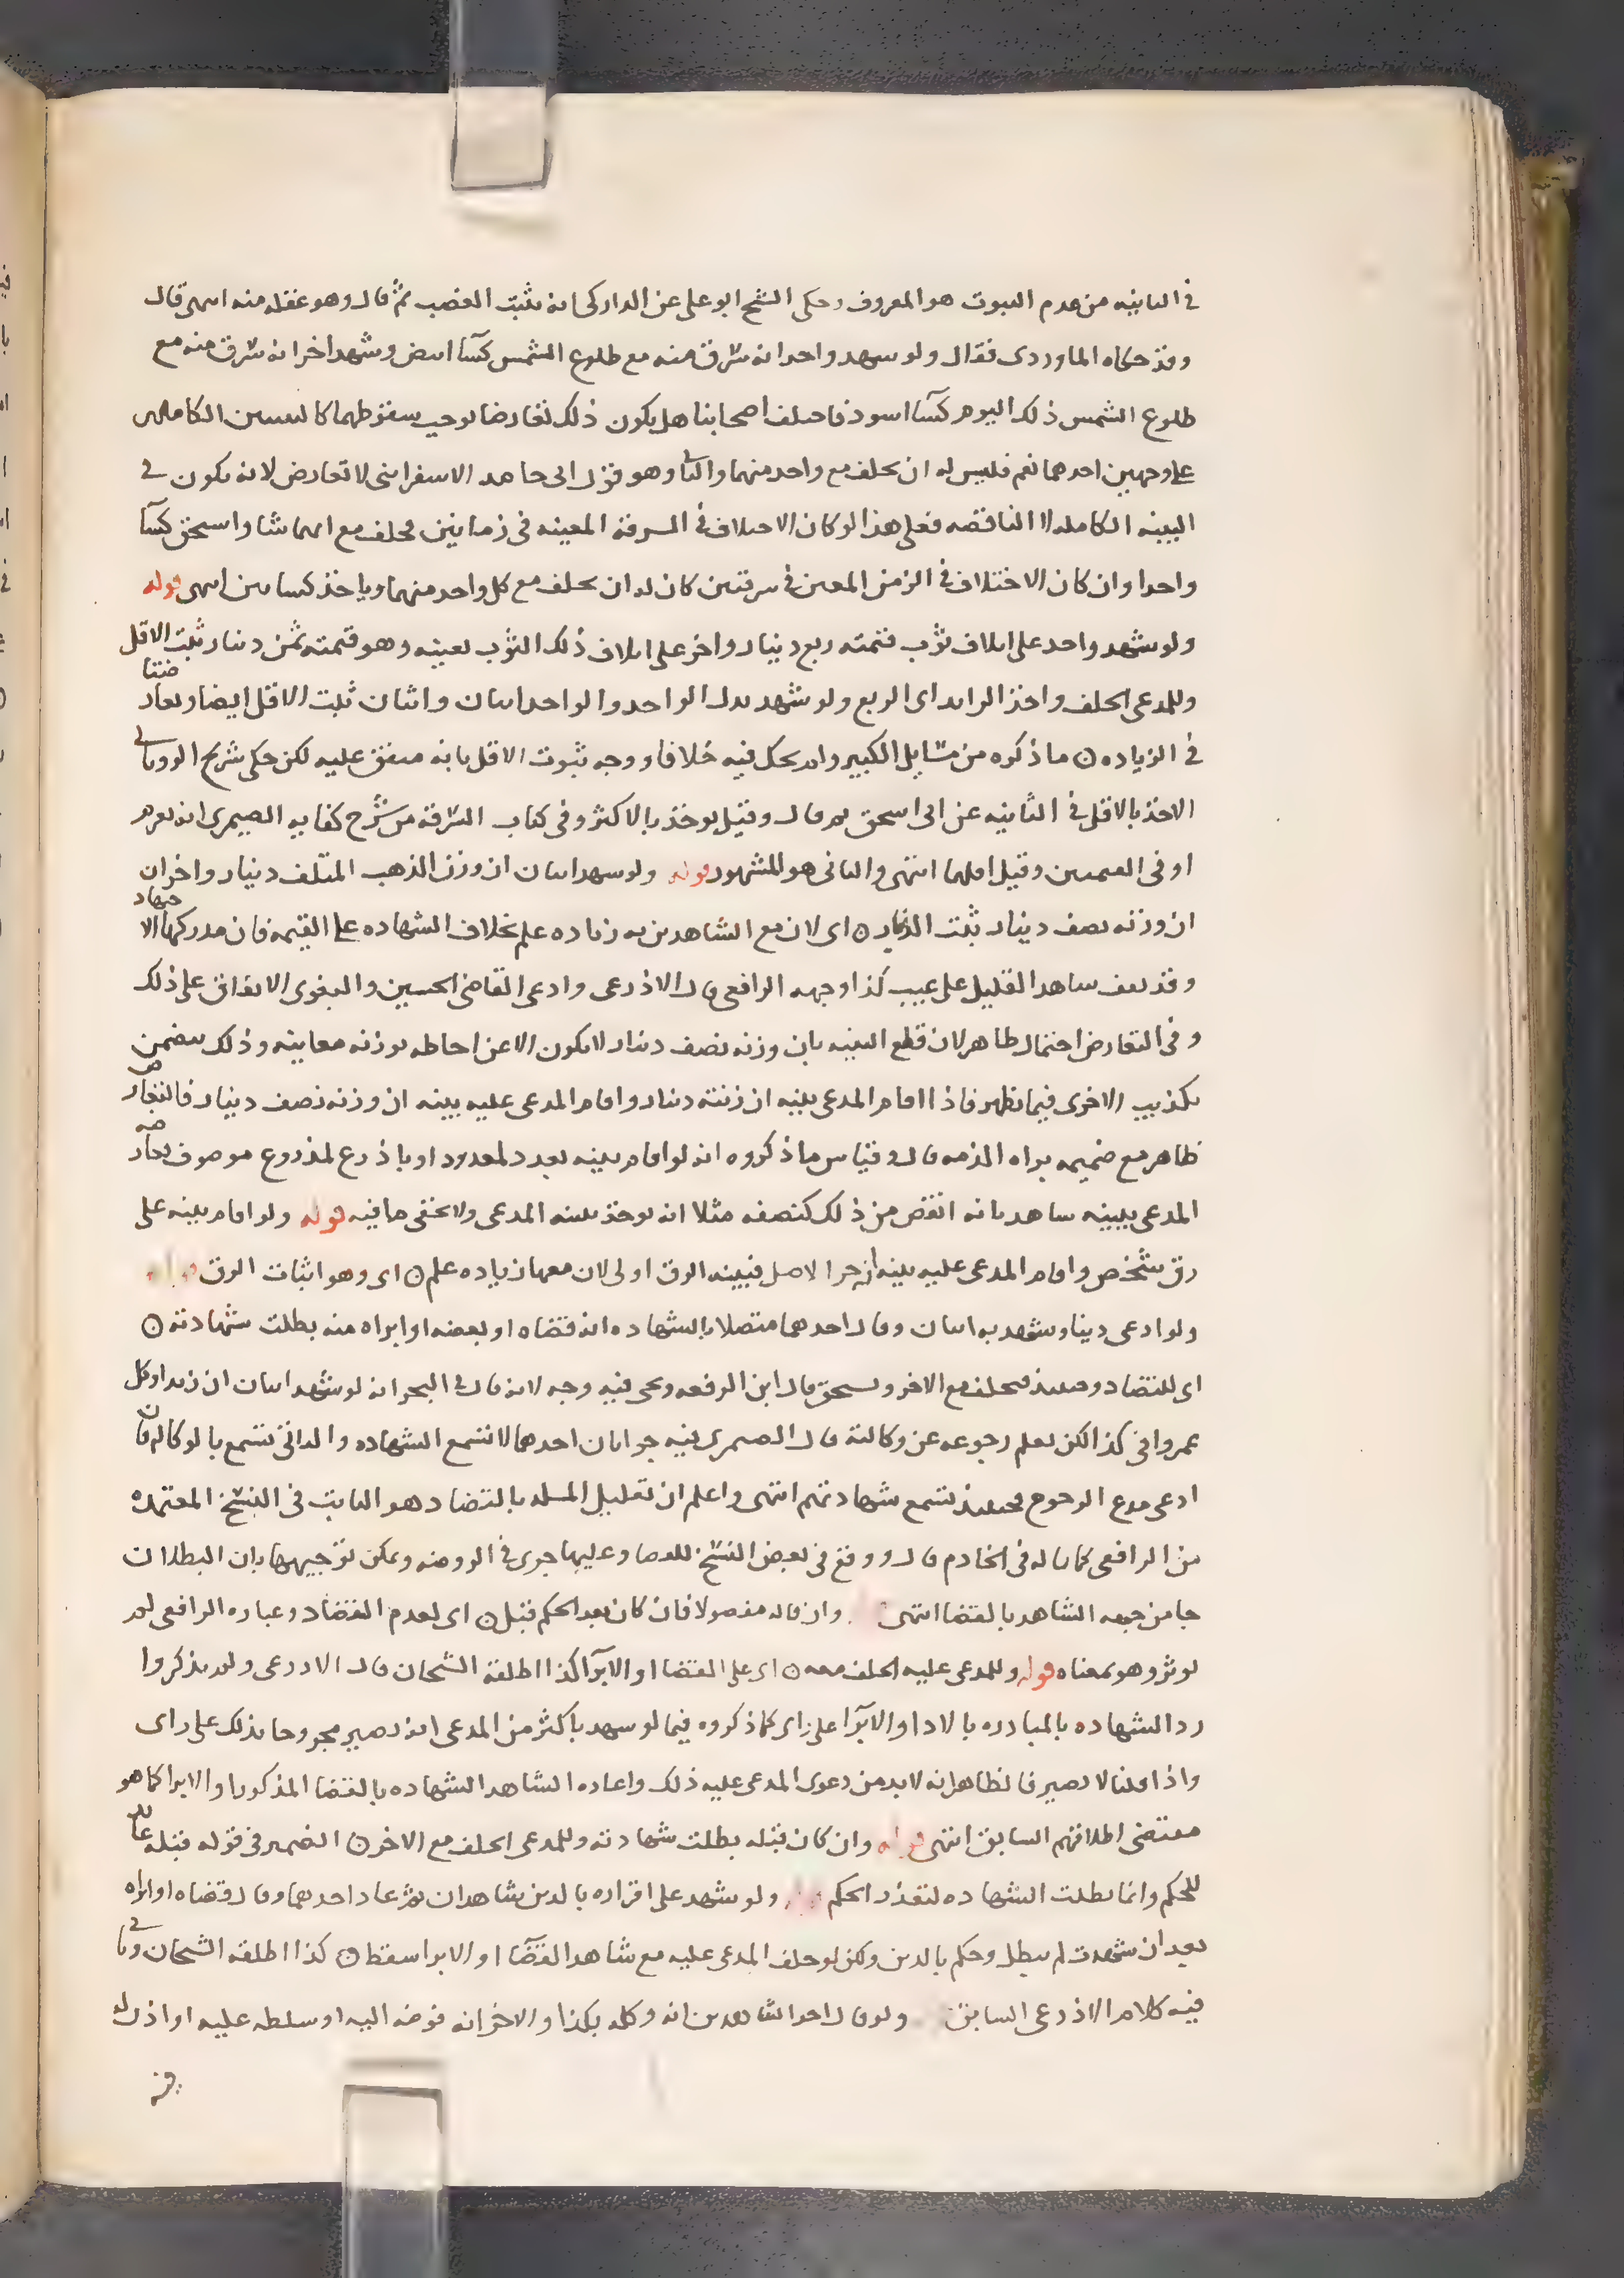 في الثانيه من عدم الثبوت هو المعروف وحكى الشيخ ابو علي عن الداركي انه يثبت الغصب ثم قال وهو غفله منه انتهى قال
وقد حكاه الماوردى فقال ولو شهد واحد انه سرق منه مع طلوع الشمس كسآ ابيض وشهد اخر انه سرق منه مع
طلوع الشمس ذلك اليوم كسآ اسود فاختلف اصحابنا هل يكون ذلك تعارضا يوجب سقوطهما كالبينتين الكاملتين
على وجهين احدهما نعم فليس له ان يحلف مع واحد منهما والثاني وهو قول ابى حامد الاسفراينى لا تعارض لانه يكون في
البينه الكامله لا الناقصه فعلى هذا لو كان الاختلاف في السرقة المعينه في زمانين فيحلف مع ايهما شا واستحق كسآ
واحدا وان كان الاختلاف في الزمن المعين في سرقتين كان له ان يحلف مع كل واحد منهما وياخذ كساين انتهى قوله
ولو شهد واحد على اتلاف ثوب قيمته ربع دينار واخر على اتلاف ذلك الثوب بعينه وهو قيمته ثمن دينار ثبت الاقل
وللمدعى الحلف واخذ الزايد اى الربع ولو شهد بدل الواحد والواحد اثنان واثنان ثبت الاقل ايضا وتعارضتا
في الزياده ۞ ما ذكره من مسايل الكبير ولم يحك فيه خلافا ووجه ثبوت الاقل بانه متفق عليه لكن حكى شريح الرويانى
الاخذ بالاقل في الثانيه عن ابى اسحق ثم قال وقيل يوخذ بالاكثر وفى كتاب السرقة من شرح كفايه الصيمرى انه يغرم
اوفى القيمتين وقيل اقلهما انتهى والثانى هو المشهور قوله ولو شهد اثنان ان وزن الذهب المتلف دينار واخران
ان وزنه نصف دينار ثبت الدينار ۞ اى لان مع الشاهدين به زياده علم بخلاف الشهاده على القيمه فان مدركها الاجتهاد
وقد يقف شاهد القليل على عيب كذا وجهه الرافعى قال الاذرعى وادعى القاضى الحسين والبغوى الاتفاق على ذلك
وفى التعارض احتمال ظاهر لان قطع البينه بان وزنه نصف دينار لا يكون الا عن احاطه بوزنه معاينه وذلك يتضمن
تكذيب الاخرى فيما يظهر فاذا اقام المدعى بينه ان زنته دينار واقام المدعى عليه بينه ان وزنه نصف دينار فالتعارض
ظاهر مع ضميمه براه الذمه قال وقياس ما ذكروه انه لو اقام بينه بعدد لمعدود او باذرع لمذروع موصوف فعارضه
المدعى ببينه شاهد بانه انقص من ذلك كنصفه مثلا انه يوخذ ببينه المدعى ولا يخفى ما فيه قوله ولو اقام بينه على
رق شخص واقام المدعى عليه بينه انه حر الاصل فبينه الرق اولى لان معها زياده علم ۞ اى وهو اثبات الرق قوله
ولو ادعى دينا وشهد به اثنان وقال احدهما متصلا بالشهاده انه قضاه او بعضه او ابراه منه بطلت شهادته ۞
اى للتضاد وحينئذ فيحلف مع الاخر ويستحق قال ابن الرفعه ويجى فيه وجه لانه قال في البحر انه لو شهد اثنان ان زيدا وكل
عمروا في كذا لكن نعلم رجوعه عن وكالته قال الصيمرى فيه جوابان احدهما لا تسمع الشهاده والثانى تسمع بالوكاله فان
ادعى مدع الرجوع فحينئذ تسمع شهادتهم انتهى واعلم ان تعليل المسله بالتضاد هو الثابت في النسخ المعتمده
من الرافعى كما قاله في الخادم قال ووقع في بعض النسخ للقضا وعليها جرى في الروضه ويمكن توجيهها بان البطلان
جا من جهه الشاهد بالقضا انتهى وان قاله مفصولا فان كان بعد الحكم قبل ۞ اى لعدم التضاد وعباره الرافعى لم
يوثر وهو بمعناه قوله وللمدعى عليه الحلف معه ۞ اى على القضا او الابرآ كذا اطلقه الشيخان قال الاذرعى ولم يذكروا
رد الشهاده بالمبادره بالادا او الابرآ على راى كما ذكروه فيما لو شهد باكثر من المدعى انه يصير مجروحا بذلك على راى
واذا قلنا لا يصير فالظاهر انه لا بد من دعوى المدعى عليه ذلك واعاده الشاهد الشهاده بالقضا المذكور او الابرا كما هو
مقتضى اطلاقهم السابق انتهى قوله وان كان قبله بطلت شهادته وللمدعى الحلف مع الاخر ۞ الضمير في قوله قبله عائد
للحكم وانما بطلت الشهاده لتعذر الحكم قوله ولو شهد على اقراره بالدين شاهدان ثم عاد احدهما وقال قضاه او ابراه
بعد ان شهدت لم يبطل وحكم بالدين ولكن لو حلف المدعى عليه مع شاهد القضآ او الابرا سقط ۞ كذا اطلقه الشيخان وياتى
فيه كلام الاذرعى السابق ولو قال احد الشاهدين انه وكله بكذا والاخر انه فوضه اليه او سلطه عليه او اذن له
فيه